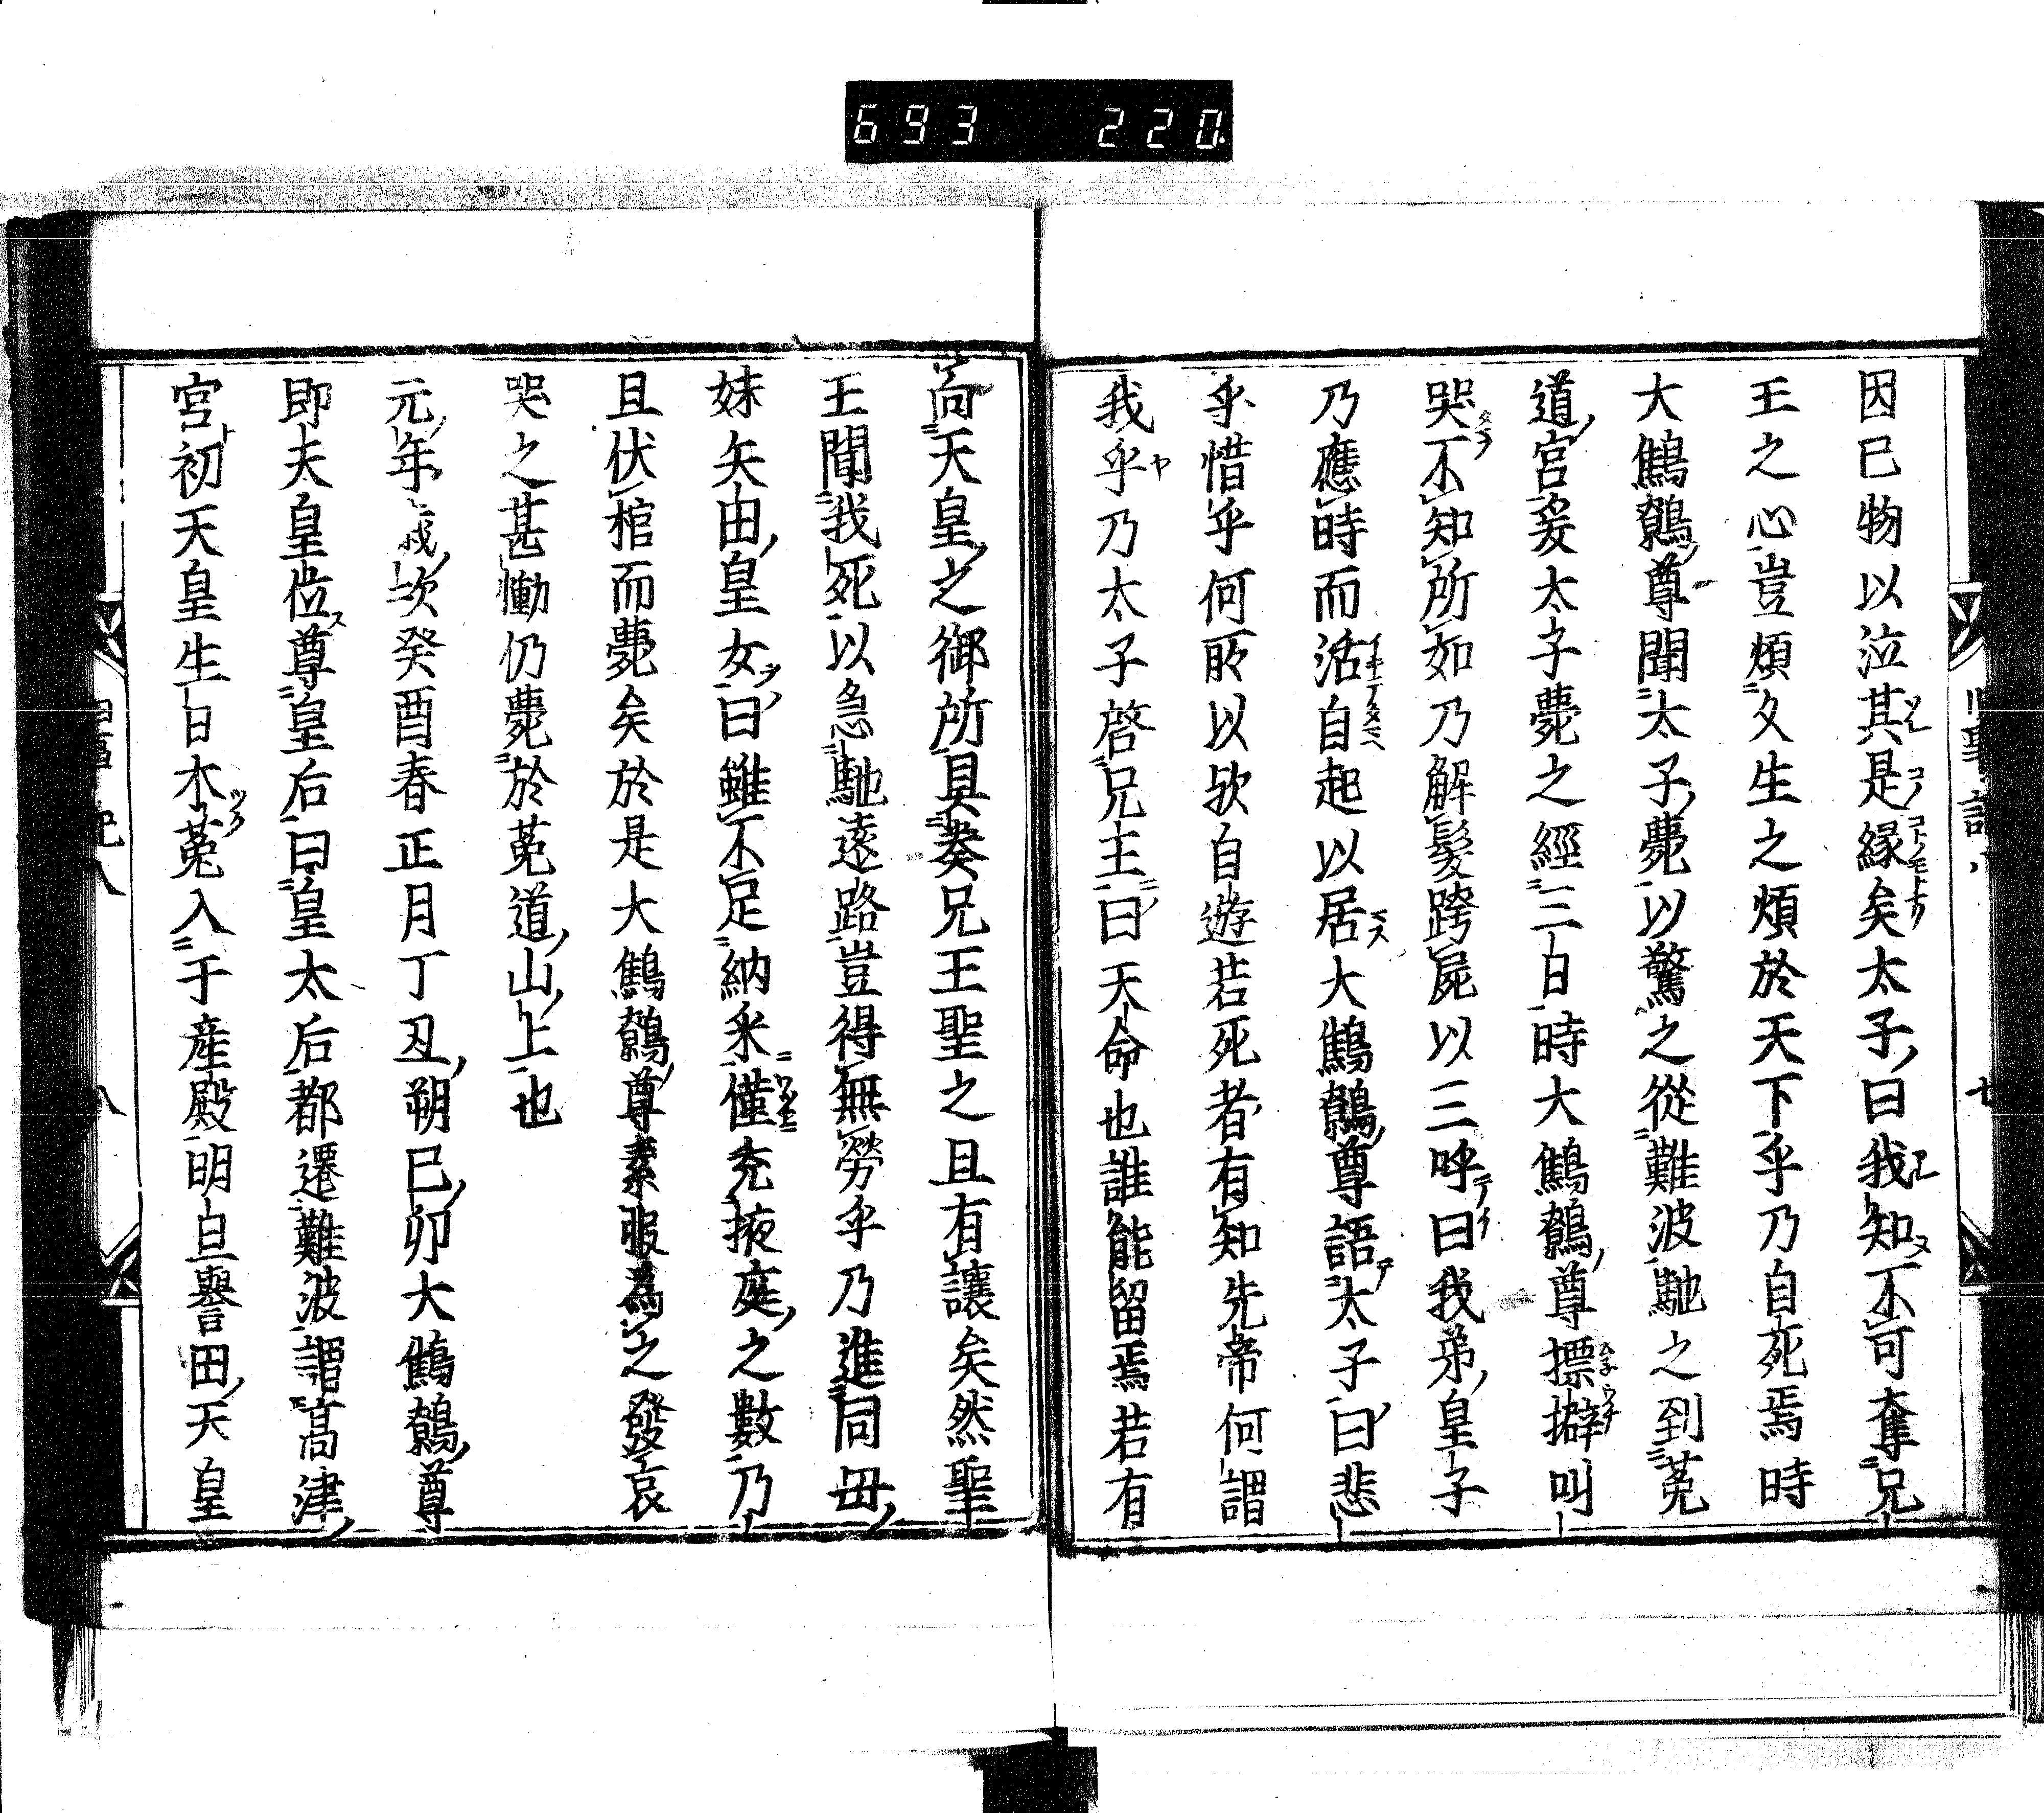 693 220
因巳物以泣其是縁矣太子曰我知不可奪兄
王之心豈煩久生之煩於天下乎乃自死焉時
大鷦鷯尊聞太子薨以驚之從難波馳之到莵
道宮爰太子薨之經三日時大鷦鷯尊摽擗叫
哭不知所如乃解髮跨屍以三呼曰我弟皇子
乃應時而活自起以居大鷦鷯尊語太子曰悲
乎惜乎何所以欤自遊若死者有知先帝何謂
我乎乃太子啓兄主曰天命也誰能留焉若有
向天皇之御所具奏兄王聖之且有讓矣然聖
王聞我死以急馳遠路豈得無勞乎乃進同毋
妹矢田皇女曰雖不足納采僅充掖庭之數乃
且伏棺而薨矣於是大鷦鷯尊素服為之發哀
哭之甚慟仍薨於莵道山上也
元年歳次癸酉春正月丁丑朔巳卯大鷦鷯尊
即天皇位尊皇后曰皇太后都遷難波謂高津
宮初天皇生日木菟入于産殿明旦譽田天皇